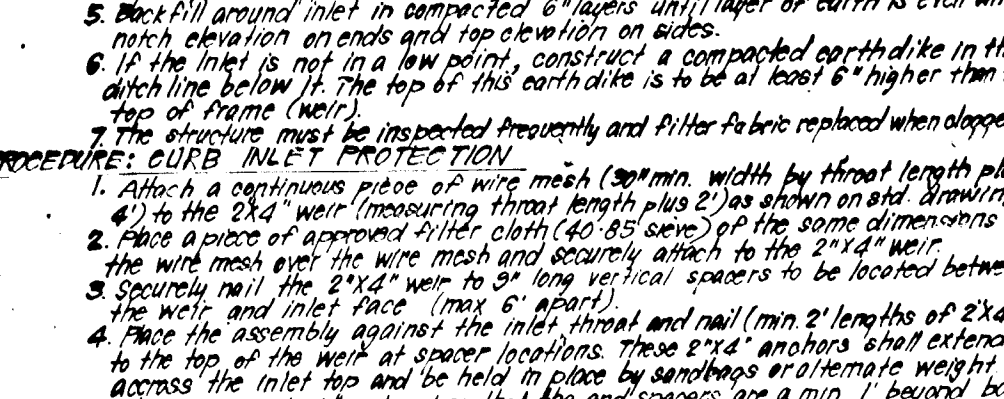 5. Backfill around inlet in compacted 6" layers until layer of earth is even
notch elevation on ends and top elevation on sides.
6. If the inlet is not in a low point, construct a compacted earth dike in
ditch line below it. The top of this earth dike is to be at least 6" higher than
top of frame (weir).
7. The structure must be inspected frequently and filter fabric replaced when
ROCEDURE: CURB INLET PROTECTION
1. Attach a continuous piece of wire mesh (30" min. width by throat length
4') to the 2X4" weir (measuring throat length plus 2') as shown on std.
2. Place a piece of approved filter cloth (40-85 sieve) of the same dimensions
the wire mesh over the wire mesh and securely attach to the 2"X4" weir.
3. Securely nail the 2"X4" weir to 9" long vertical spacers to be located
the weir and inlet face (max 6' apart).
4. Place the assembly against the inlet throat and nail (min. 2' lengths of
to the top of the weir at spacer locations. These 2"X4" anchors shall extend
accross the inlet top and be held in place by sandbags or alternate weight.
the end spacers are a min. 1' beyond